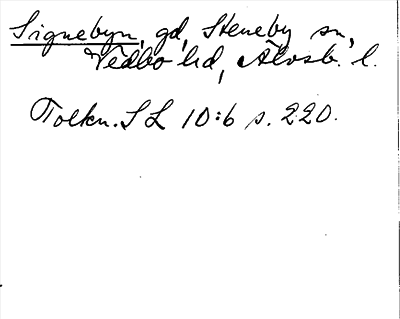 Signebyn, gd, Steneby sn,
Vedbo hd, Älvsb. l.
Tolkn. SL 10:6 s. 220.